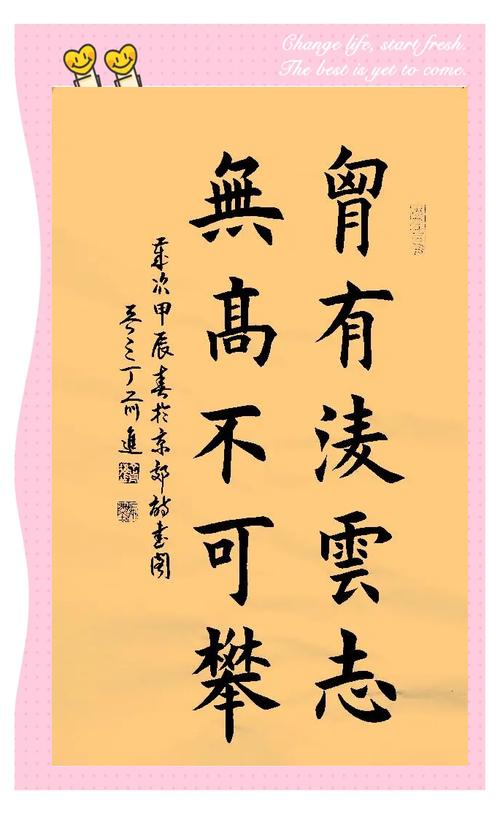 Change life, start fresh.
The best is yet to come.
胷有淩雲志
無髙不可攀
歲次甲辰春於京郊
丁前進